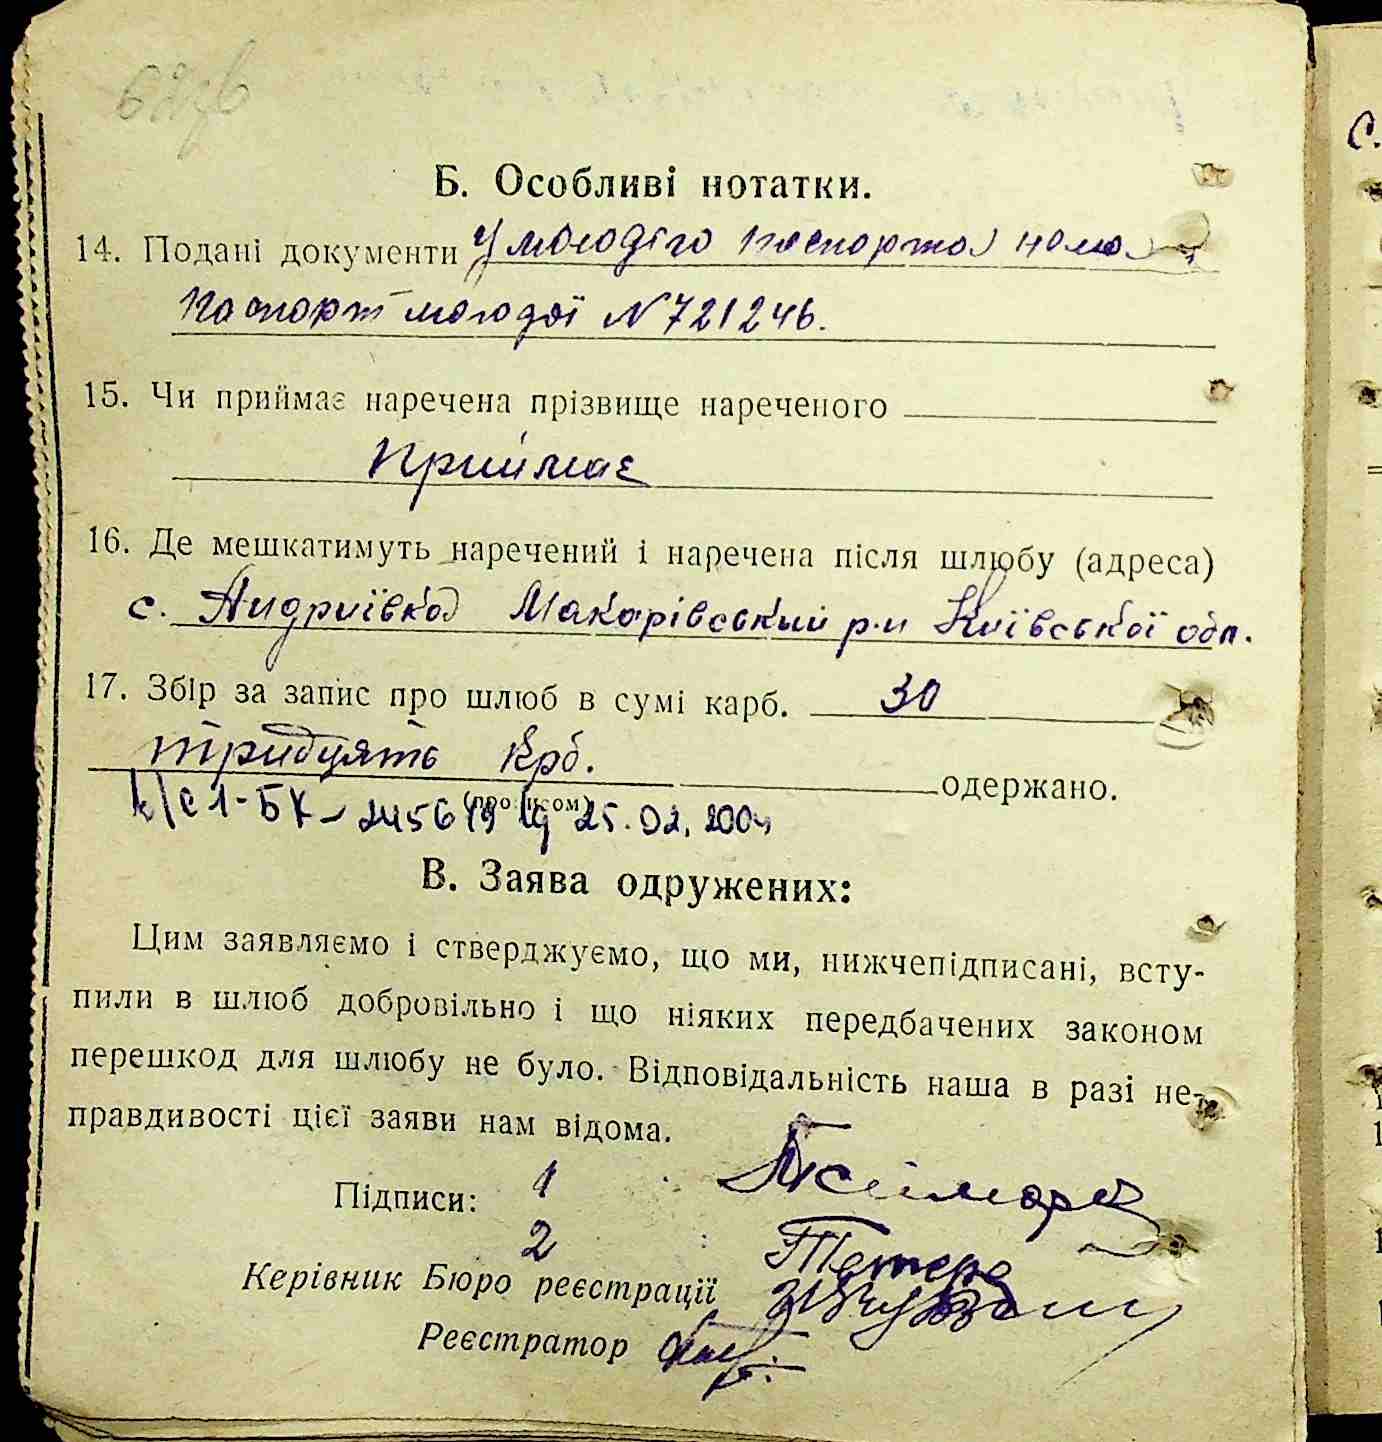 Б. Особливі нотатки.
14. Подані документи У молодого паспорта нема
Паспорт молодої N 721246.
15. Чи приймає наречена прізвище нареченого
Приймає
16. Де мешкатимуть наречений і наречена після шлюбу (адреса)
с. Андриївка Макарівський р-н Київської обл.
17. Збір за запис про шлюб в сумі карб. 30
тридцять крб. одержано.
(прописом)
1-БК- 245649 25.02.2004
В. Заява одружених:
Цим заявляємо і стверджуємо, що ми, нижчепідписані, всту-
пили в шлюб добровільно і що ніяких передбачених законом
перешкод для шлюбу не було. Відповідальність наша в разі не-
правдивості цієї заяви нам відома.
Підписи: 1
2 Тетера
Керівник Бюро реєстрації
Реєстратор